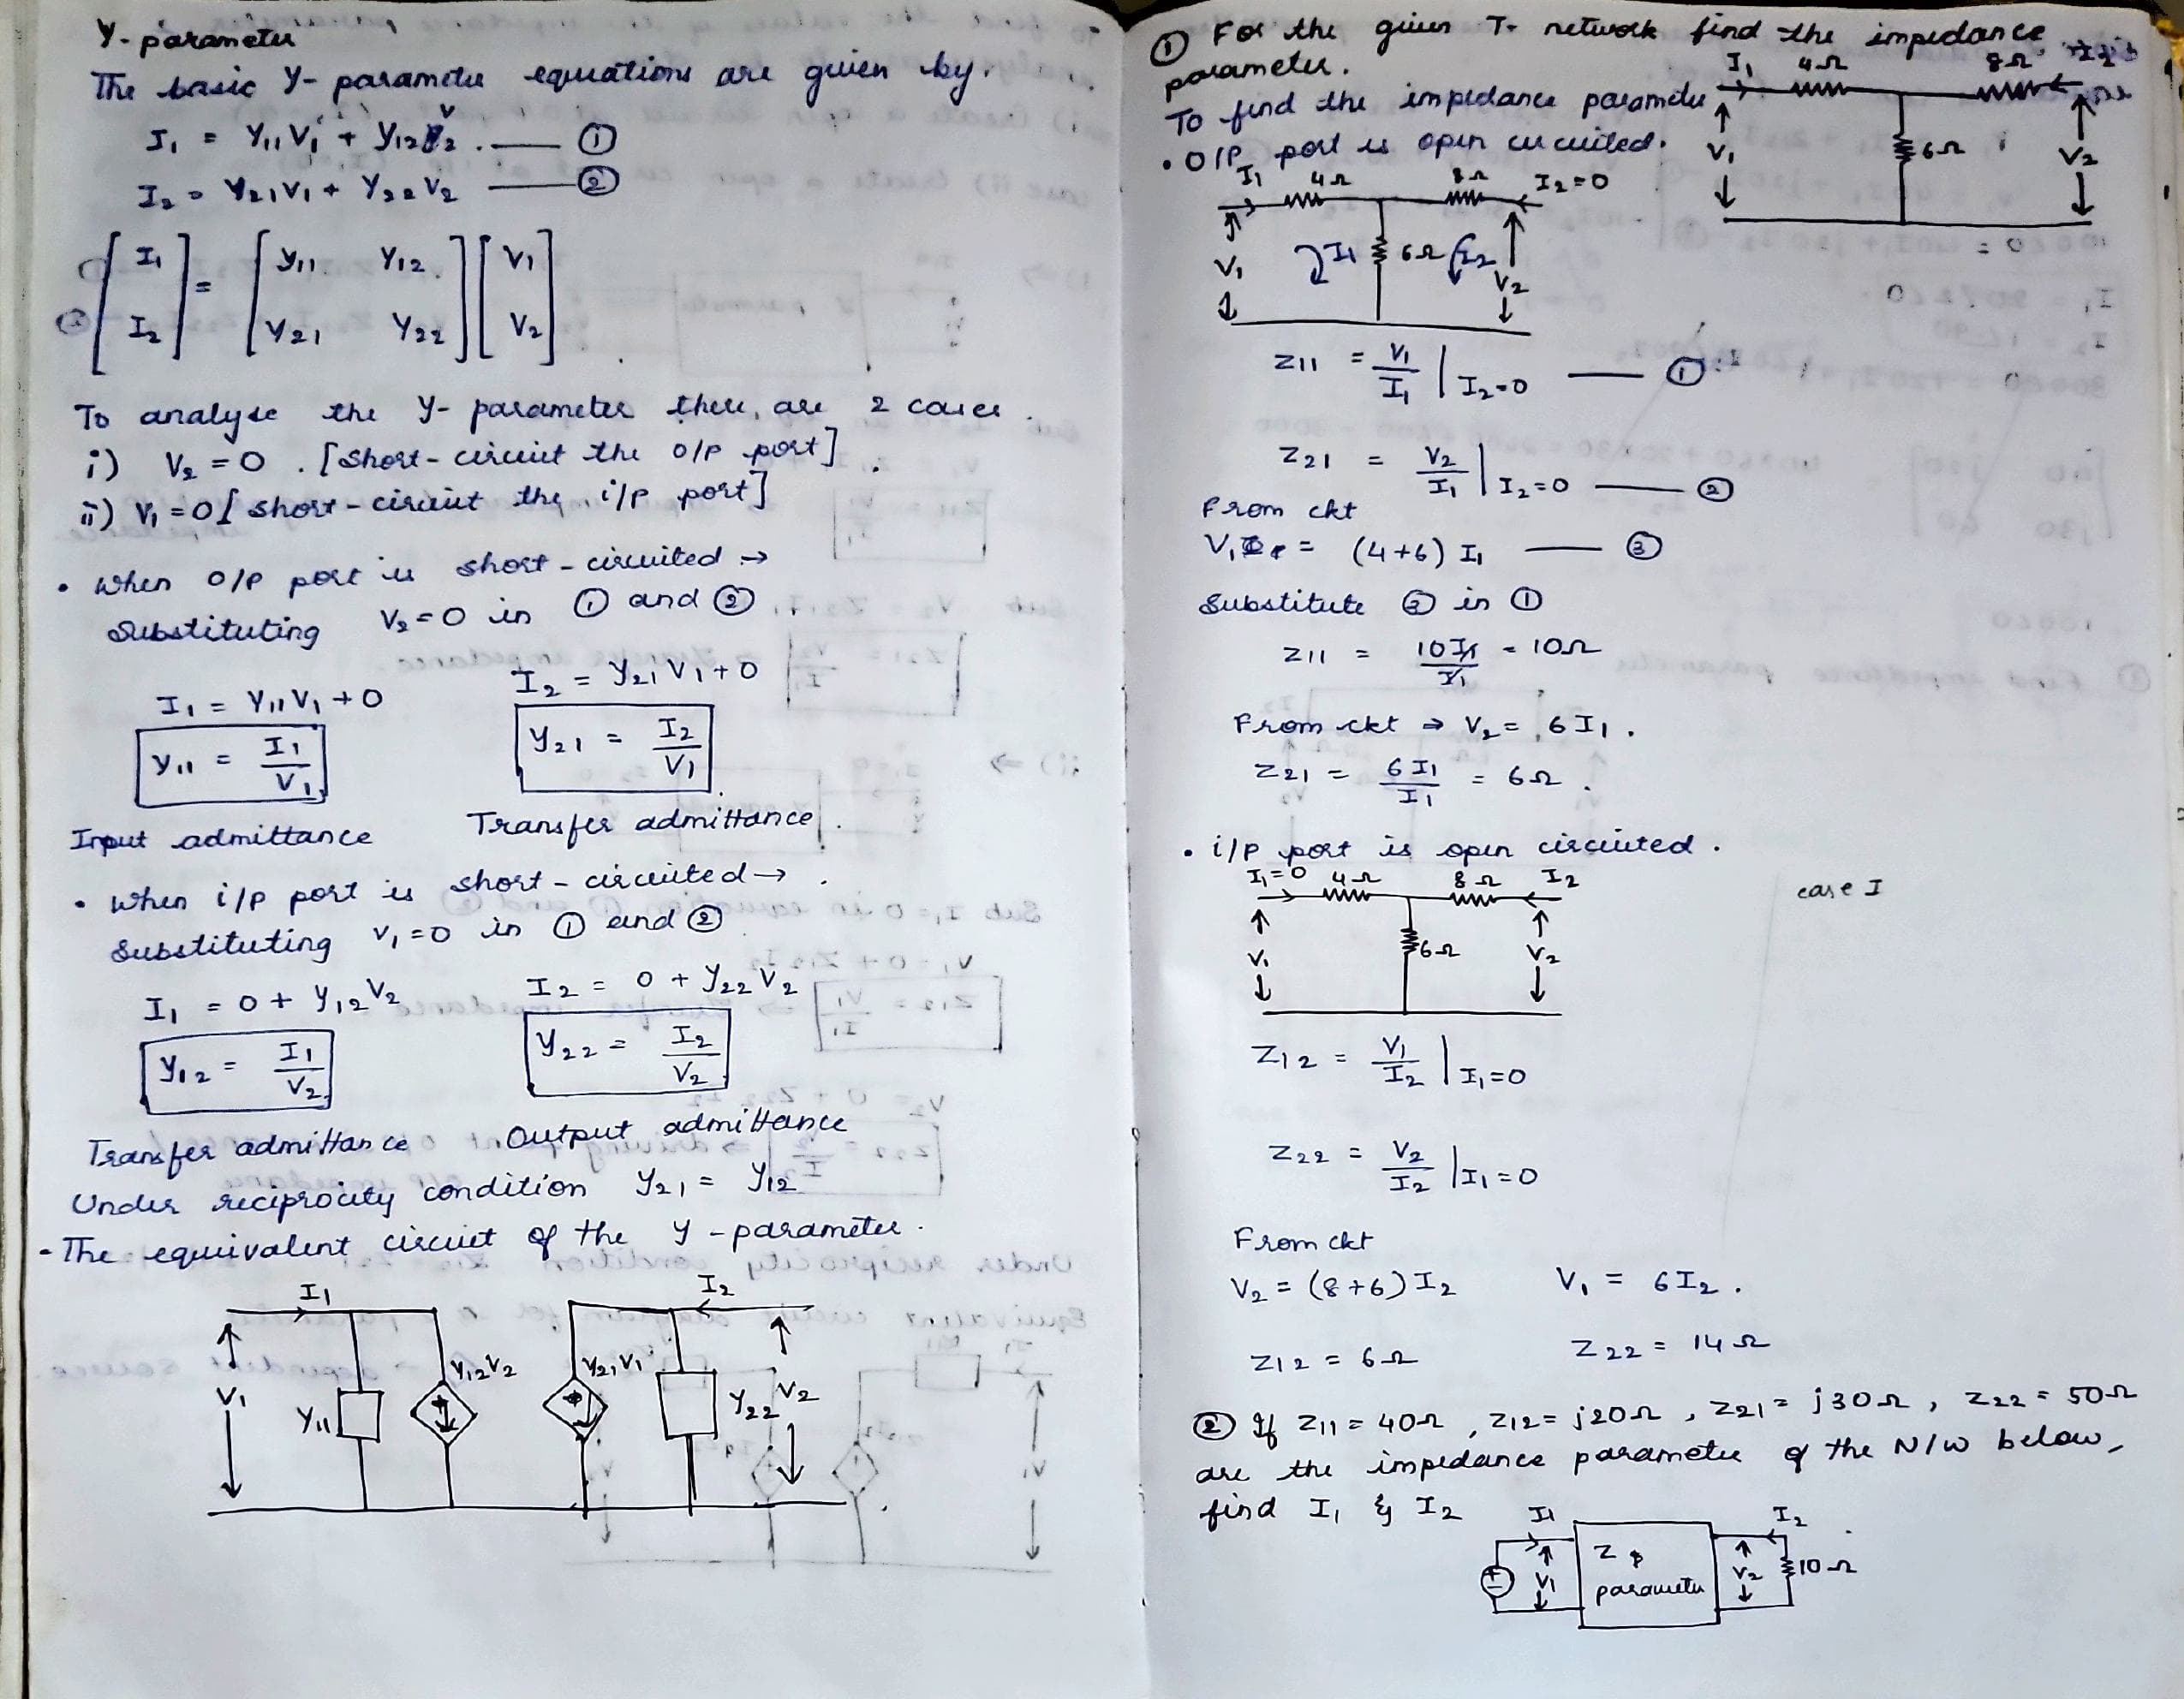 Y-parameter
The basic Y-parameter equations are given by.
I₁ = Y₁₁V₁ + Y₁₂V₂. — ①
I₂ = Y₂₁V₁ + Y₂₂V₂ — ②
① [I₁] = [Y₁₁ Y₁₂] [V₁]
② [I₂] [Y₂₁ Y₂₂] [V₂]
To analyse the Y-parameter there are 2 cases.
i) V₂ = 0. [Short-circuit the o/p port].
ii) V₁ = 0 [short-circuit the i/p port]
• When o/p port is short-circuited →
Substituting V₂ = 0 in ① and ②
I₁ = Y₁₁V₁ + 0 I₂ = Y₂₁V₁ + 0
Y₁₁ = I₁/V₁ Y₂₁ = I₂/V₁
Input admittance Transfer admittance.
• When i/p port is short-circuited →.
Substituting V₁ = 0 in ① and ②
I₁ = 0 + Y₁₂V₂ I₂ = 0 + Y₂₂V₂
Y₁₂ = I₁/V₂ Y₂₂ = I₂/V₂
Transfer admittance Output admittance
Under reciprocity condition Y₂₁ = Y₁₂
- The equivalent circuit of the Y-parameter.
I₁ I₂
V₁ Y₁₁ Y₁₂V₂ Y₂₁V₁ Y₂₂ V₂
① For the given T- network find the impedance
parameter.
I₁ 4Ω 8Ω I₂
V₁ 6Ω V₂
To find the impedance parameter
• O/P port is open circuited.
I₁ 4Ω 8Ω I₂=0
V₁ I₁ 6Ω I₂ V₂
Z₁₁ = V₁/I₁ | I₂=0 — ①
Z₂₁ = V₂/I₁ | I₂=0 — ②
From ckt
V₁ = (4+6) I₁ — ③
Substitute ③ in ①
Z₁₁ = 10I₁/I₁ = 10Ω
From ckt ⇒ V₂ = 6I₁.
Z₂₁ = 6I₁/I₁ = 6Ω.
• i/p port is open circuited.
I₁=0 4Ω 8Ω I₂
case I
V₁ 6Ω V₂
Z₁₂ = V₁/I₂ | I₁=0
Z₂₂ = V₂/I₂ | I₁=0
From ckt
V₂ = (8+6)I₂ V₁ = 6I₂.
Z₁₂ = 6Ω Z₂₂ = 14Ω
② If Z₁₁ = 40Ω, Z₁₂ = j20Ω, Z₂₁ = j30Ω, Z₂₂ = 50Ω
are the impedance parameter of the N/W below,
find I₁ & I₂
I₁ I₂
V₁ Z parameter V₂ 10Ω